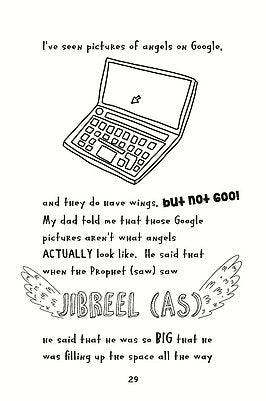 I've seen pictures of angels on Google,
and they do have wings, but not 600!
My dad told me that those Google
pictures aren't what angels
ACTUALLY look like. He said that
when the Prophet (saw) saw
JIBREEL (AS)
he said that he was so BIG that he
was filling up the space all the way
29